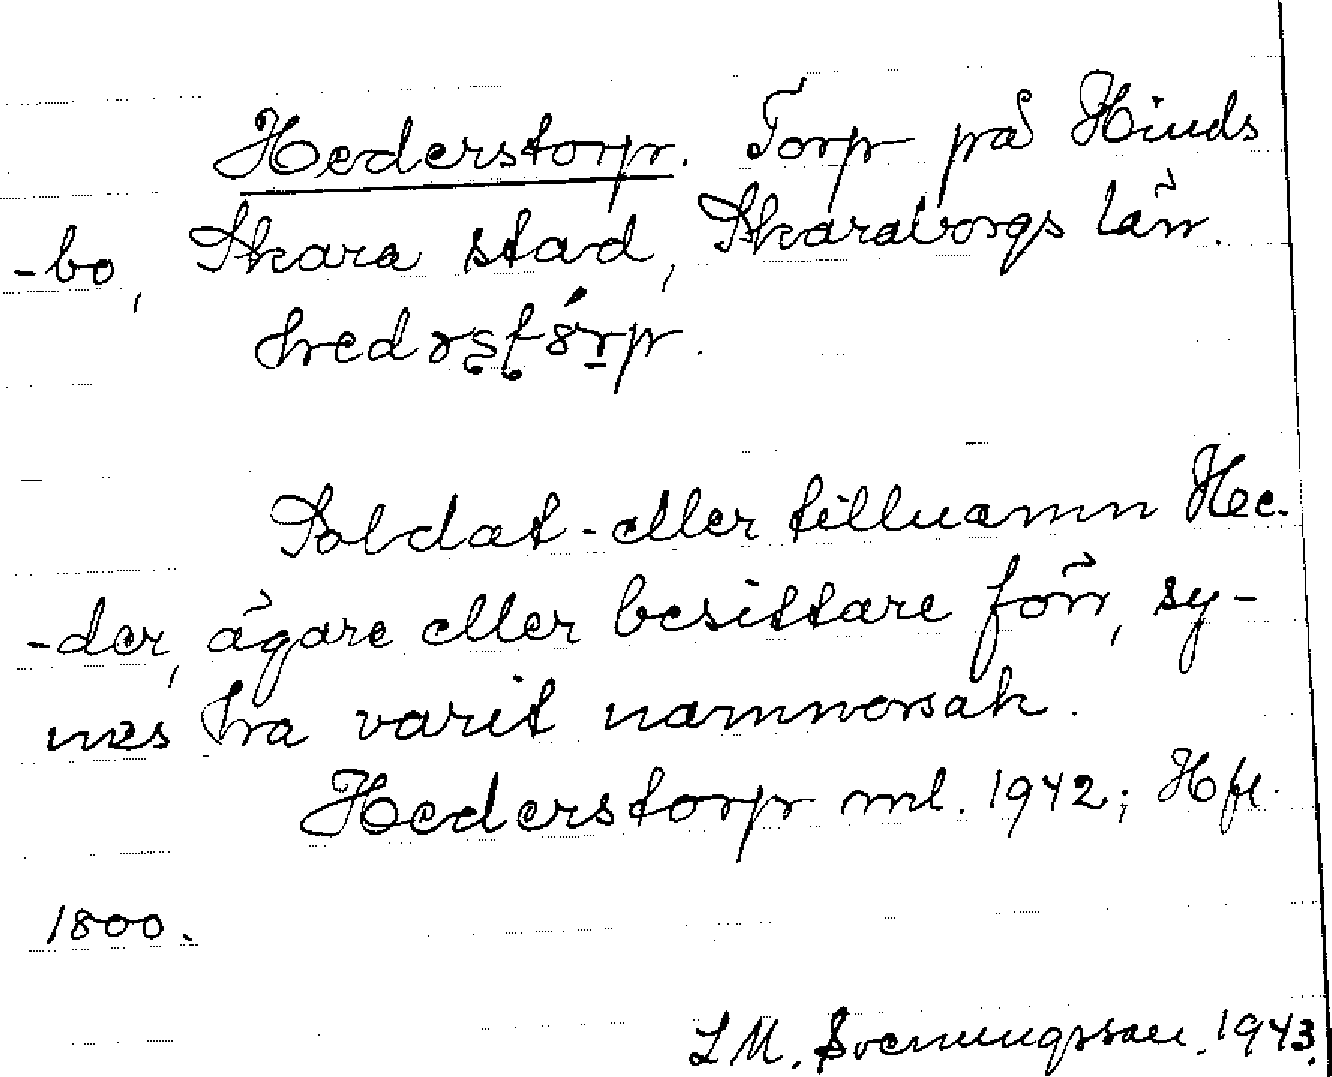 Hederstorp. Torp på Hinds
-bo, Skara stad, Skaraborgs län.
hedərʂʈórp.
Soldat- eller tillnamn He-
-der, ägare eller besittare förr, sy-
nes ha varit namnorsak.
Hederstorp ml. 1942; Hfl.
1800.
L M. Svenungsson. 1943.